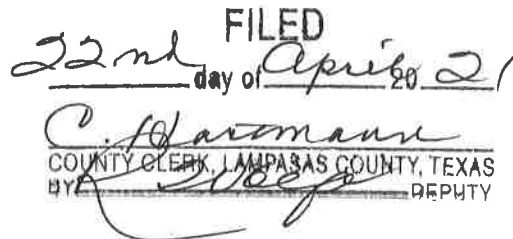 FILED
22nd day of April 20 21
C. Hartmann
COUNTY CLERK, LAMPASAS COUNTY, TEXAS
BY DEPUTY